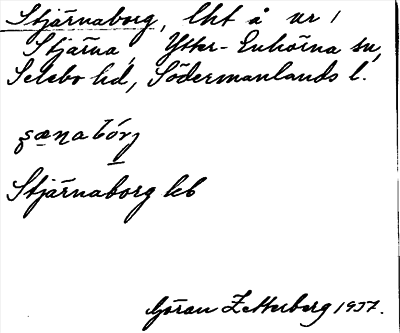 Stjärnaborg, lht å nr 1
Stjärna, Ytter-Enhörna sn,
Selebo hd, Södermanlands l.
Stjärnaborg kb
Göran Zetterberg 1937.